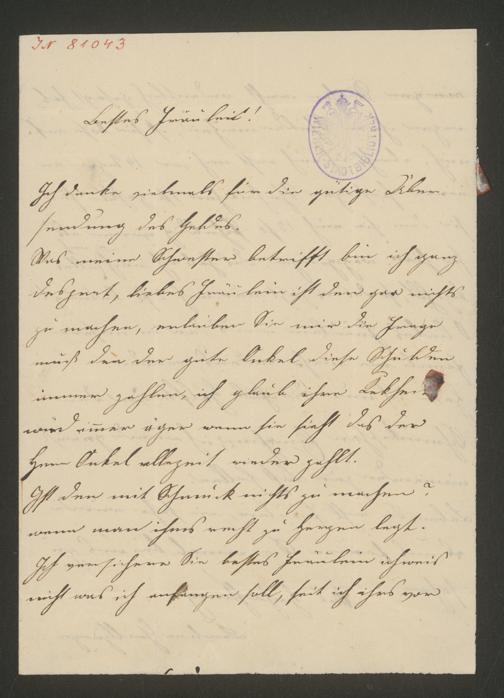 IN 81043
Bestes Fräulein!
Ich danke vielmals für die gütige Über-
sendung des Geldes.
Was meine Schwester betrifft bin ich ganz
desprat, liebes Fräulein ist den gar nichts
zu machen, erlauben Sie mir die Frage
muß den der gute Onkel diese Schulden
immer zahlen, ich glaub ihre Kekheit
wird immer äger wenn sie sieht das der
Herr Onkel allezeit wieder zahlt.
Ist den mit Schmuck nichts zu machen?
wenn man ihms recht zu Herzen legt.
Ich versichere Sie bestes Fräulein ich weis
nicht was ich anfangen soll, seit ich ihrs vor